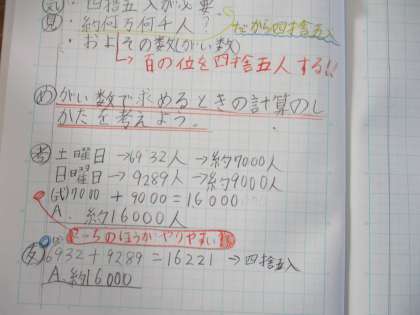 気・四捨五入が必要.
見・約何万何千人?
ナビから四捨五入
・およその数(がい数)
→百の位を四捨五入する!!
めがい数で求めるときの計算のし
かたを考えよう.
考 土曜日→6932人→約7000人
日曜日→9289人→約9000人
(式)7000 + 9000 = 16000
A. 約16000人
こっちのほうがやりやすい
友 6932+9289=16221 →四捨五入
A.約16000